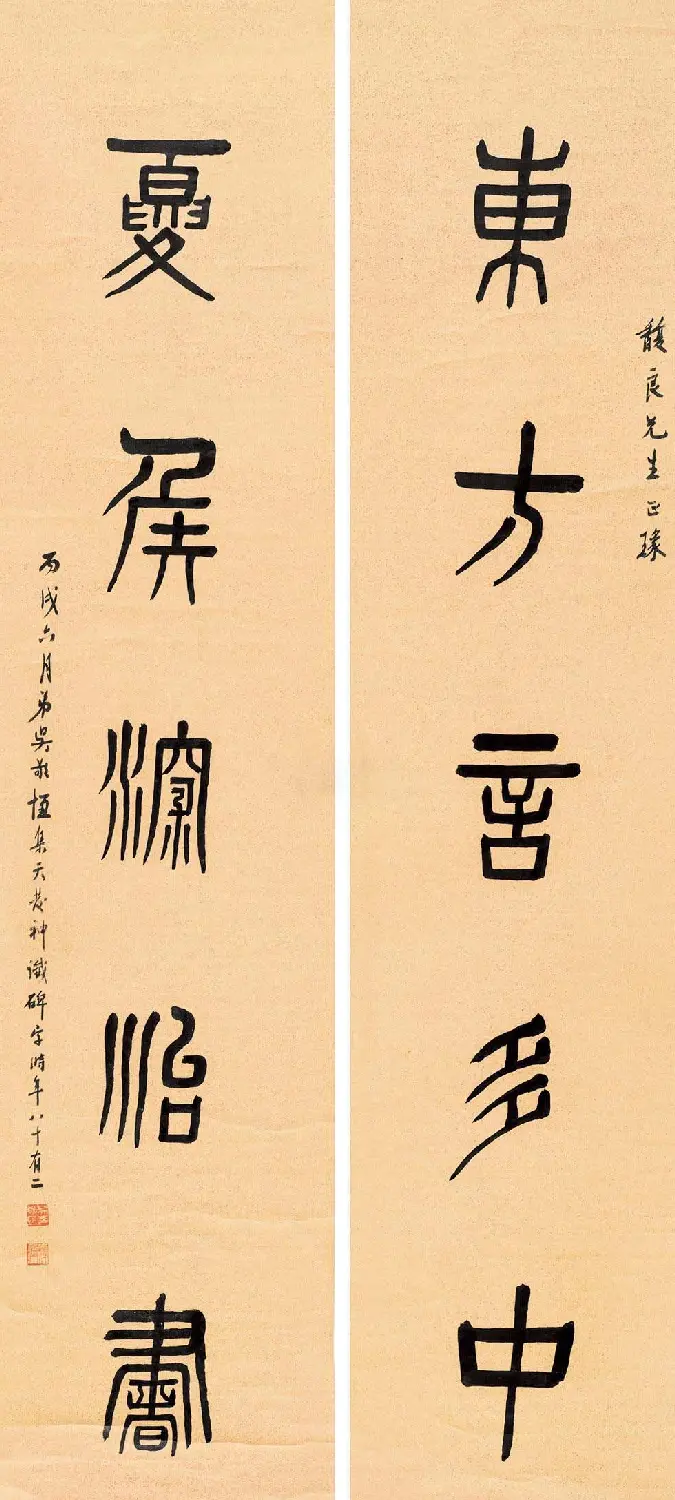 馥良先生正瑑
東方言多中
夏侯深治書
丙戌六月弟吳敬恆集天發神讖碑字時年八十有二